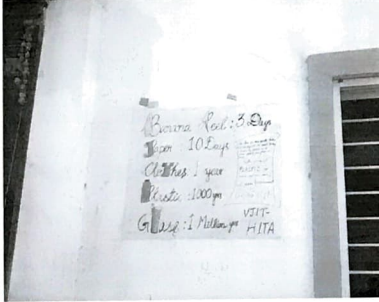 Banana Peel : 3 Days
Paper 10 Days
Clothes 1 year
Plastic :1000 yrs
Glass :1 Million yrs
VJIT-
HITA